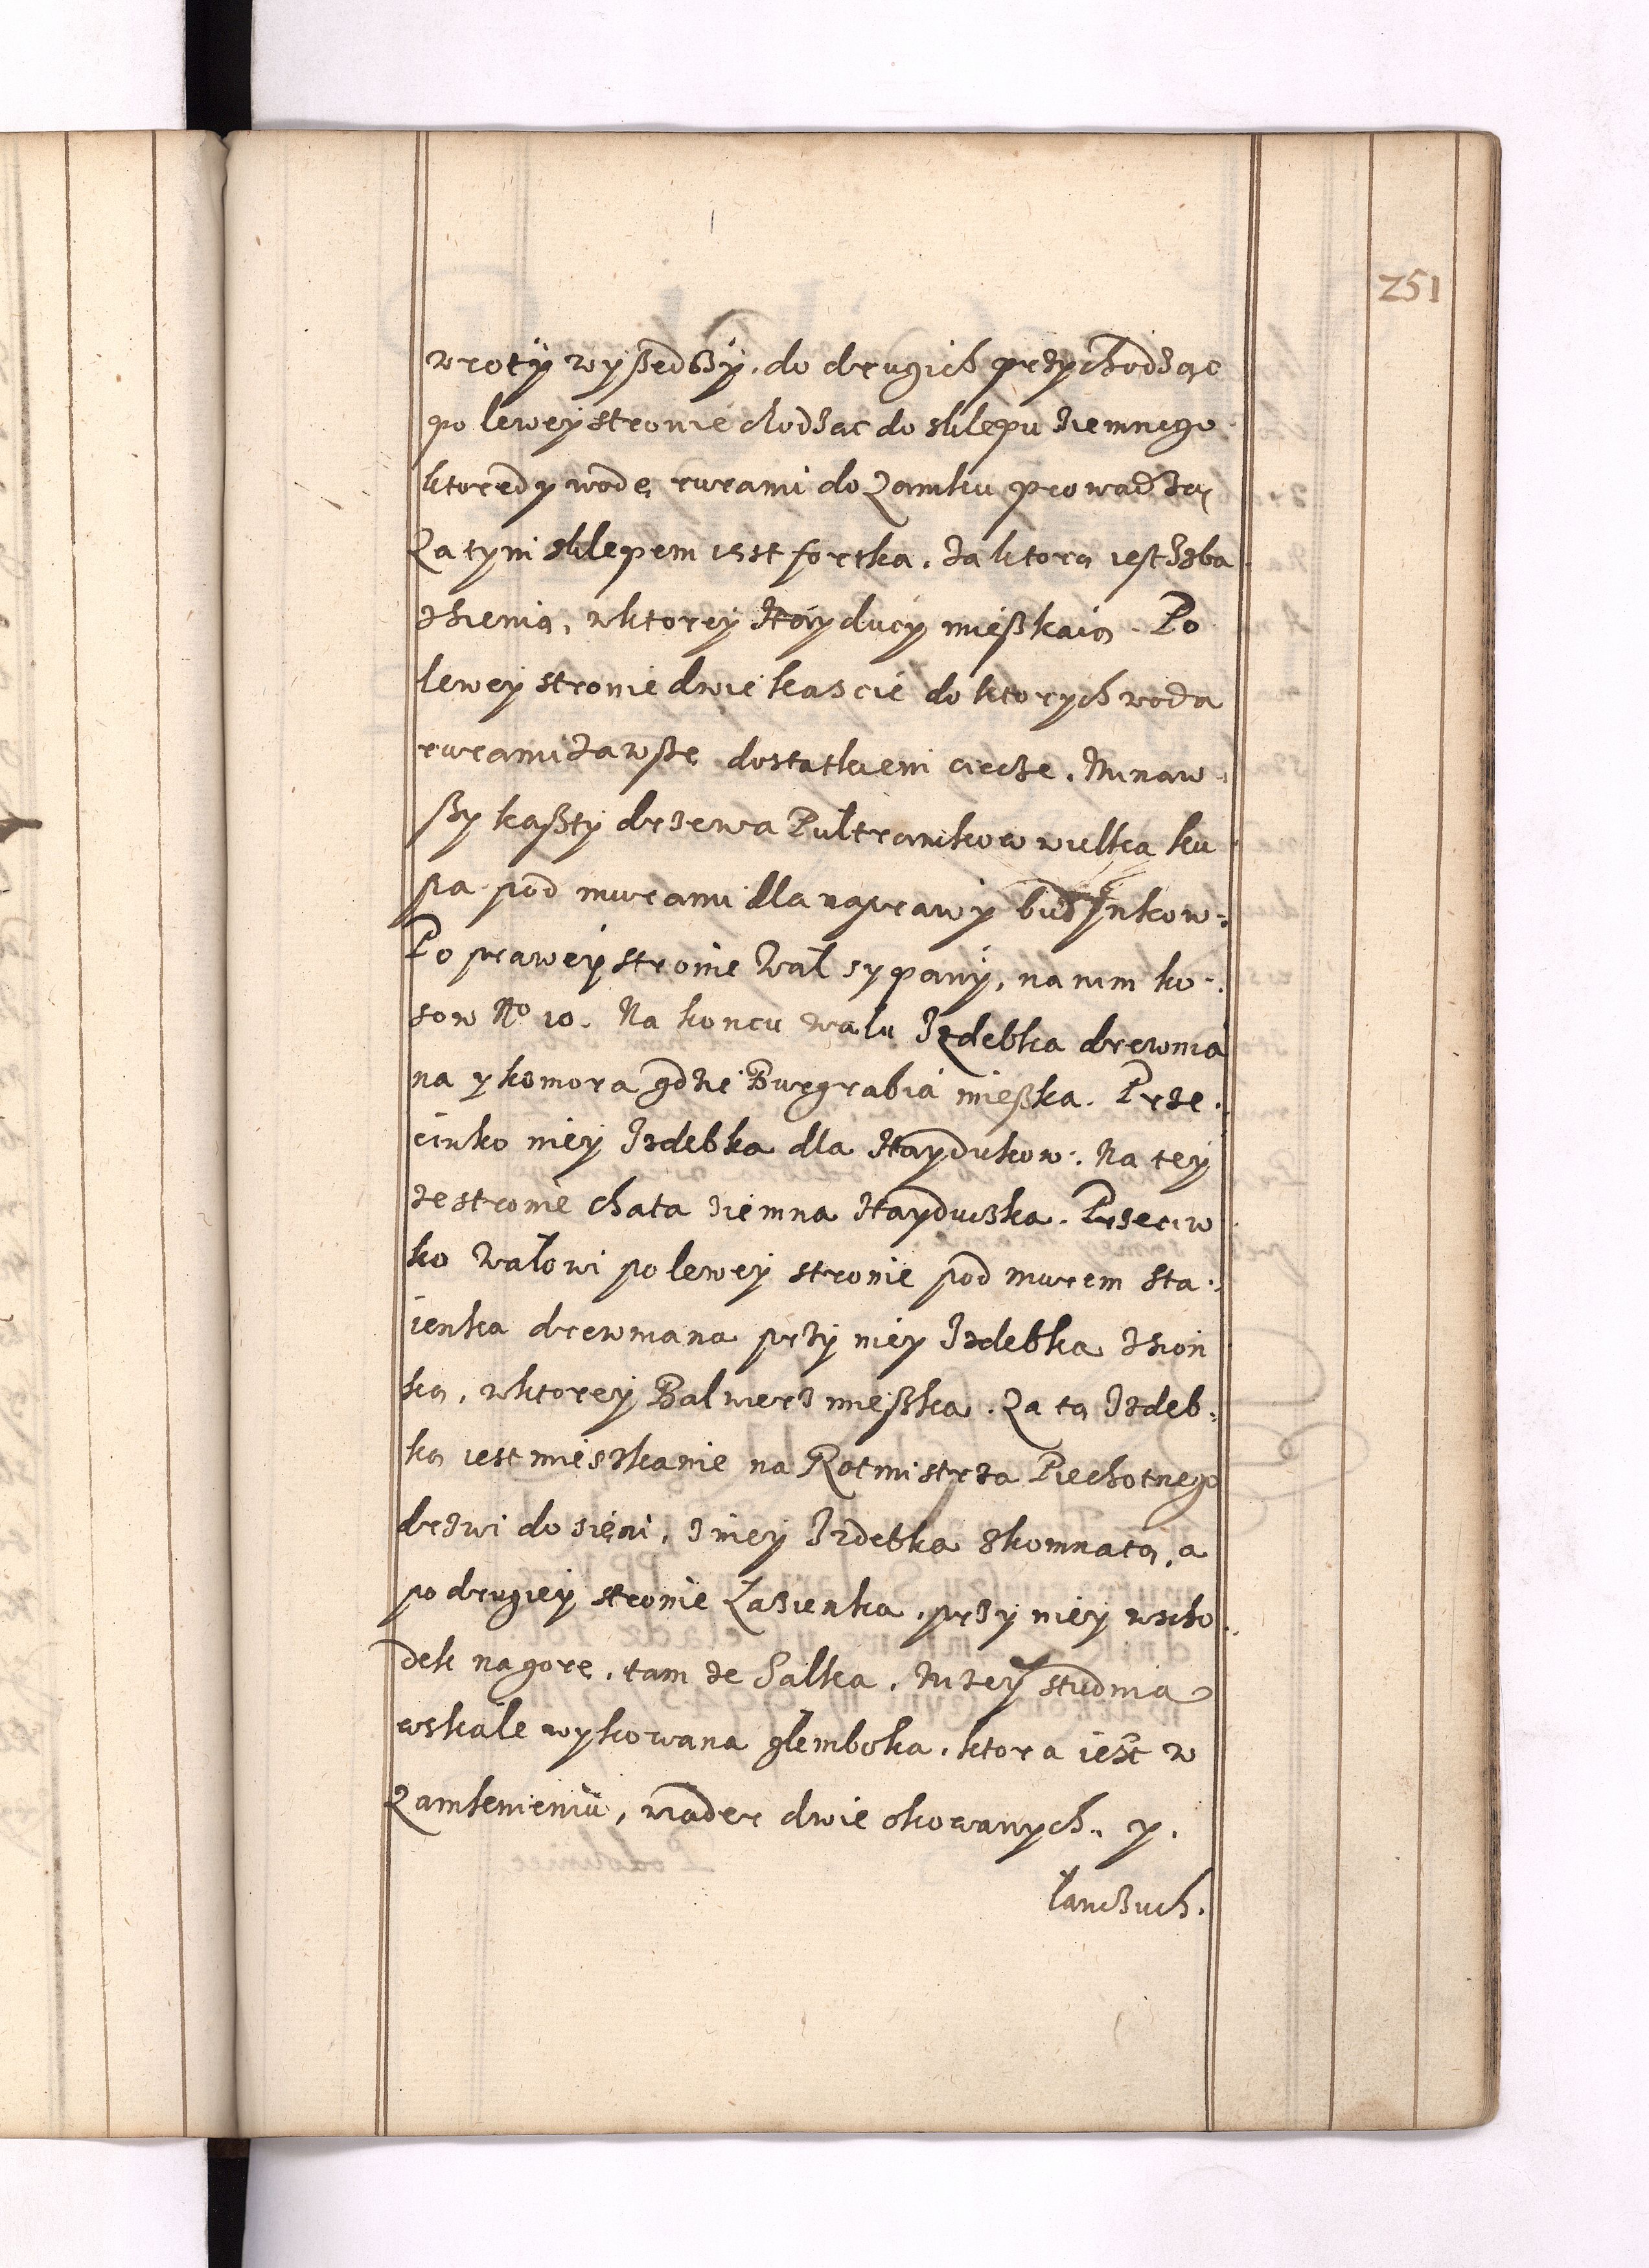 251
wroty wyßedßy, do drugich przychodząc
po lewey stronie chodząc do sklepu ziemnego
ktoredy wodę rurami do Zamku prowadzą
Za tym sklepem iest fortka, za ktorą iest Izba
zsienią, wktorey Hayducy mießkaią. Po
lewey stronie dwie kascie do ktorych woda
rurami zawsze dostatkiem ciecze, Minaw-
ßy kaßty drzewa Pultramkow wielka ku
pa pod murami dla naprawy budynkow.
Po prawey stronie Wał sypany, na nim ko-
sow No 10. Na koncu wału Izdebka drewnia
na y komora gdzie Burgrabia mießka. Prze-
ciwko niey Izdebka dla Haydukow. Na tey
ze stronie chata ziemna Hayduczka. Przeciw
ko Wałowi po lewey stronie pod murem sta-
ienka drewniana przy niey Izdebka zsion
ką, wktorey Balwierz mießka. Za tą Izdeb-
ką iest mieszkanie na Rotmistrza Piechotnego
drzwi do sięni, z niey Izdebka zkomnatą, a
po drugiey stronie Łazienka, przy niey wscho-
dek na gorę, tam ze Salka. Tuzey studnia
wskale wykowana glemboka, ktora iest w
Zamknieniu, wiader dwie okowanych y
łanczuch.